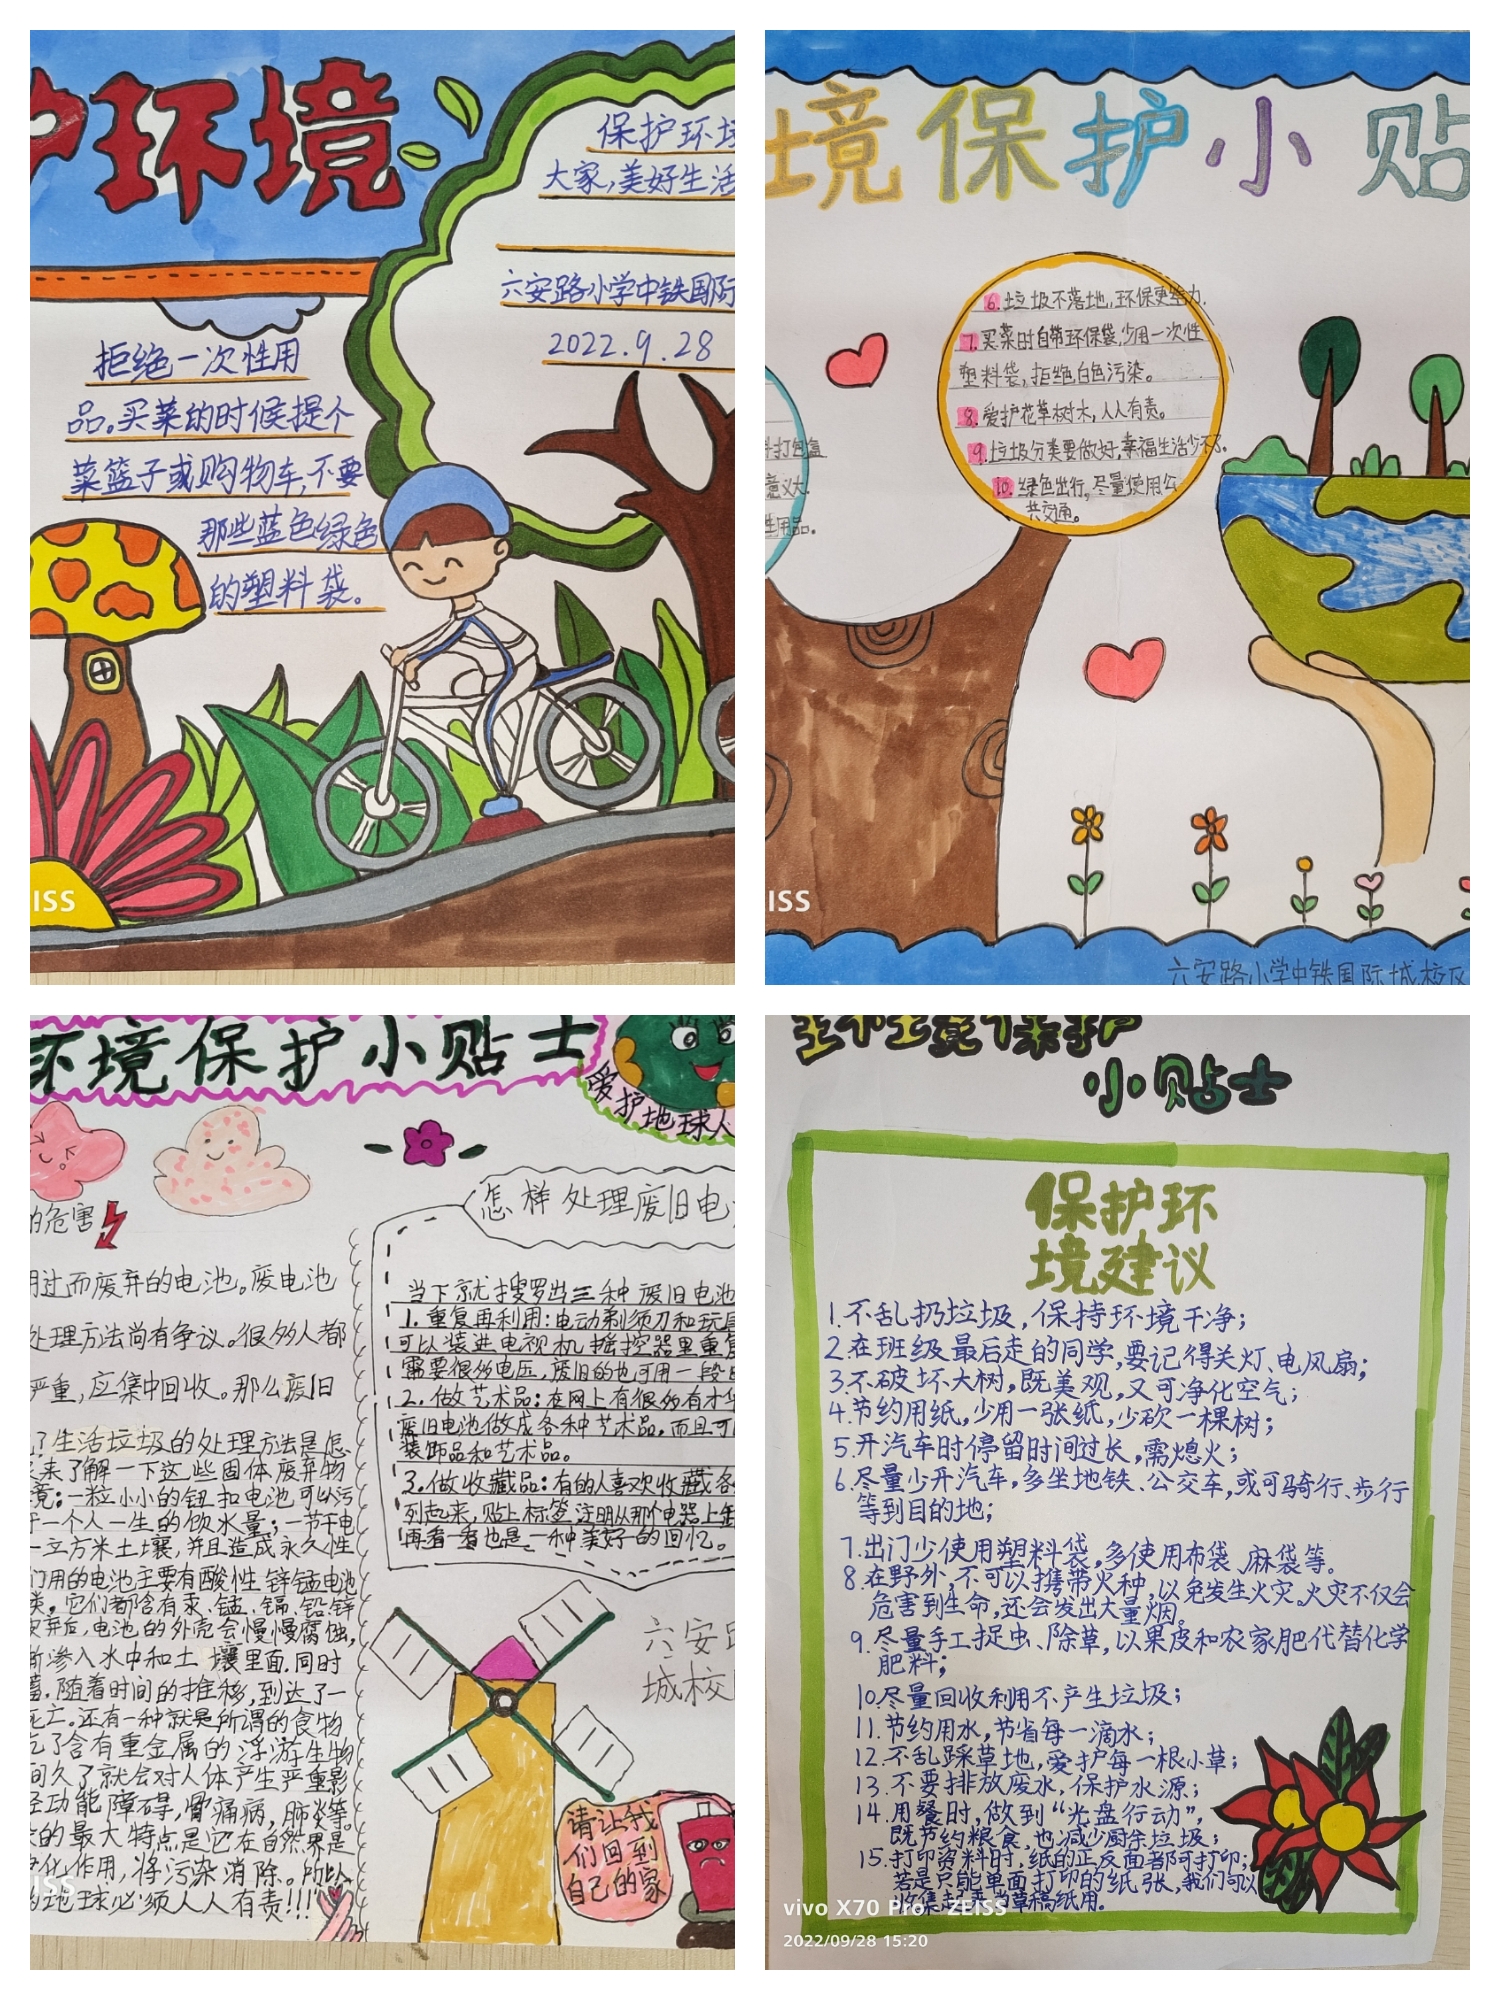 护环境
保护环境
大家,美好生活
六安路小学中铁国际
2022.9.28
拒绝一次性用
品。买菜的时候提个
菜篮子或购物车,不要
那些蓝色绿色
的塑料袋。
ISS
境保护小贴
6.垃圾不落地,环保更给力.
7.买菜时自带环保袋,少用一次性
塑料袋,拒绝白色污染。
8.爱护花草树木,人人有责。
9.垃圾分类要做好,幸福生活少不了.
10.绿色出行,尽量使用公
共交通。
打包盒
意义大.
生用品。
ISS
六安路小学中铁国际城校区
环境保护小贴士
爱护地球人
的危害
用过而废弃的电池。废电池
处理方法尚有争议。很多人都
严重,应集中回收。那么废旧
?生活垃圾的处理方法是怎
来了解一下这些固体废弃物
境:一粒小小的钮扣电池可以污
于一个人一生的饮水量;一节干电
一立方米土壤,并且造成永久性
们用的电池主要有酸性锌锰电池
类。它们都含有汞、锰、镉、铅、锌
弃后,电池的外壳会慢慢腐蚀,
渐渗入水中和土壤里面.同时
随着时间的推移,到达了一
死亡.还有一种就是所谓的食物
吃了含有重金属的浮游生物
间久了就会对人体产生严重影
经功能障碍,骨痛病,肺炎等。
的最大特点是它在自然界是
净化作用,将污染消除。所以
地球必须人人有责!!!
ISS
怎样处理废旧电
当下就搜罗出三种废旧电池
1.重复再利用:电动剃须刀和玩具
可以装进电视机摇控器里重复
需要很多电压,废旧的也可用一段
2.做艺术品:在网上有很多有才华
废旧电池做成各种艺术品,而且可
装饰品和艺术品。
3.做收藏品:有的人喜欢收藏各
列起来,贴上标签,注明从那个电器上卸
再看一看也是一种美好的回忆。
六安
城校
请让我
们回到
自己的家
环境保护
小贴士
保护环
境建议
1.不乱扔垃圾,保持环境干净;
2.在班级最后走的同学,要记得关灯、电风扇;
3.不破坏大树,既美观,又可净化空气;
4.节约用纸,少用一张纸,少砍一棵树;
5.开汽车时停留时间过长,需熄火;
6.尽量少开汽车,多坐地铁、公交车,或可骑行、步行
等到目的地;
7.出门少使用塑料袋,多使用布袋、麻袋等。
8.在野外,不可以携带火种,以免发生火灾。火灾不仅会
危害到生命,还会发出大量烟。
9.尽量手工捉虫、除草,以果皮和农家肥代替化学
肥料;
10.尽量回收利用不产生垃圾;
11.节约用水,节省每一滴水;
12.不乱踩草地,爱护每一根小草;
13.不要排放废水,保护水源;
14.用餐时,做到“光盘行动”,
既节约粮食,也减少厨余垃圾;
15.打印资料时,纸的正反面都可打印;
若是只能单面打印的纸张,我们可以
收集起来当草稿纸用.
vivo X70 Pro+ ZEISS
2022/09/28 15:20